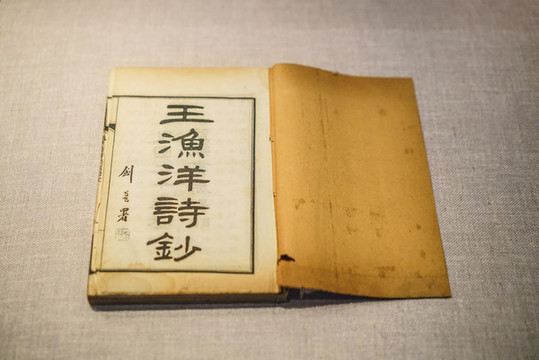 王漁洋詩鈔
劍喜署